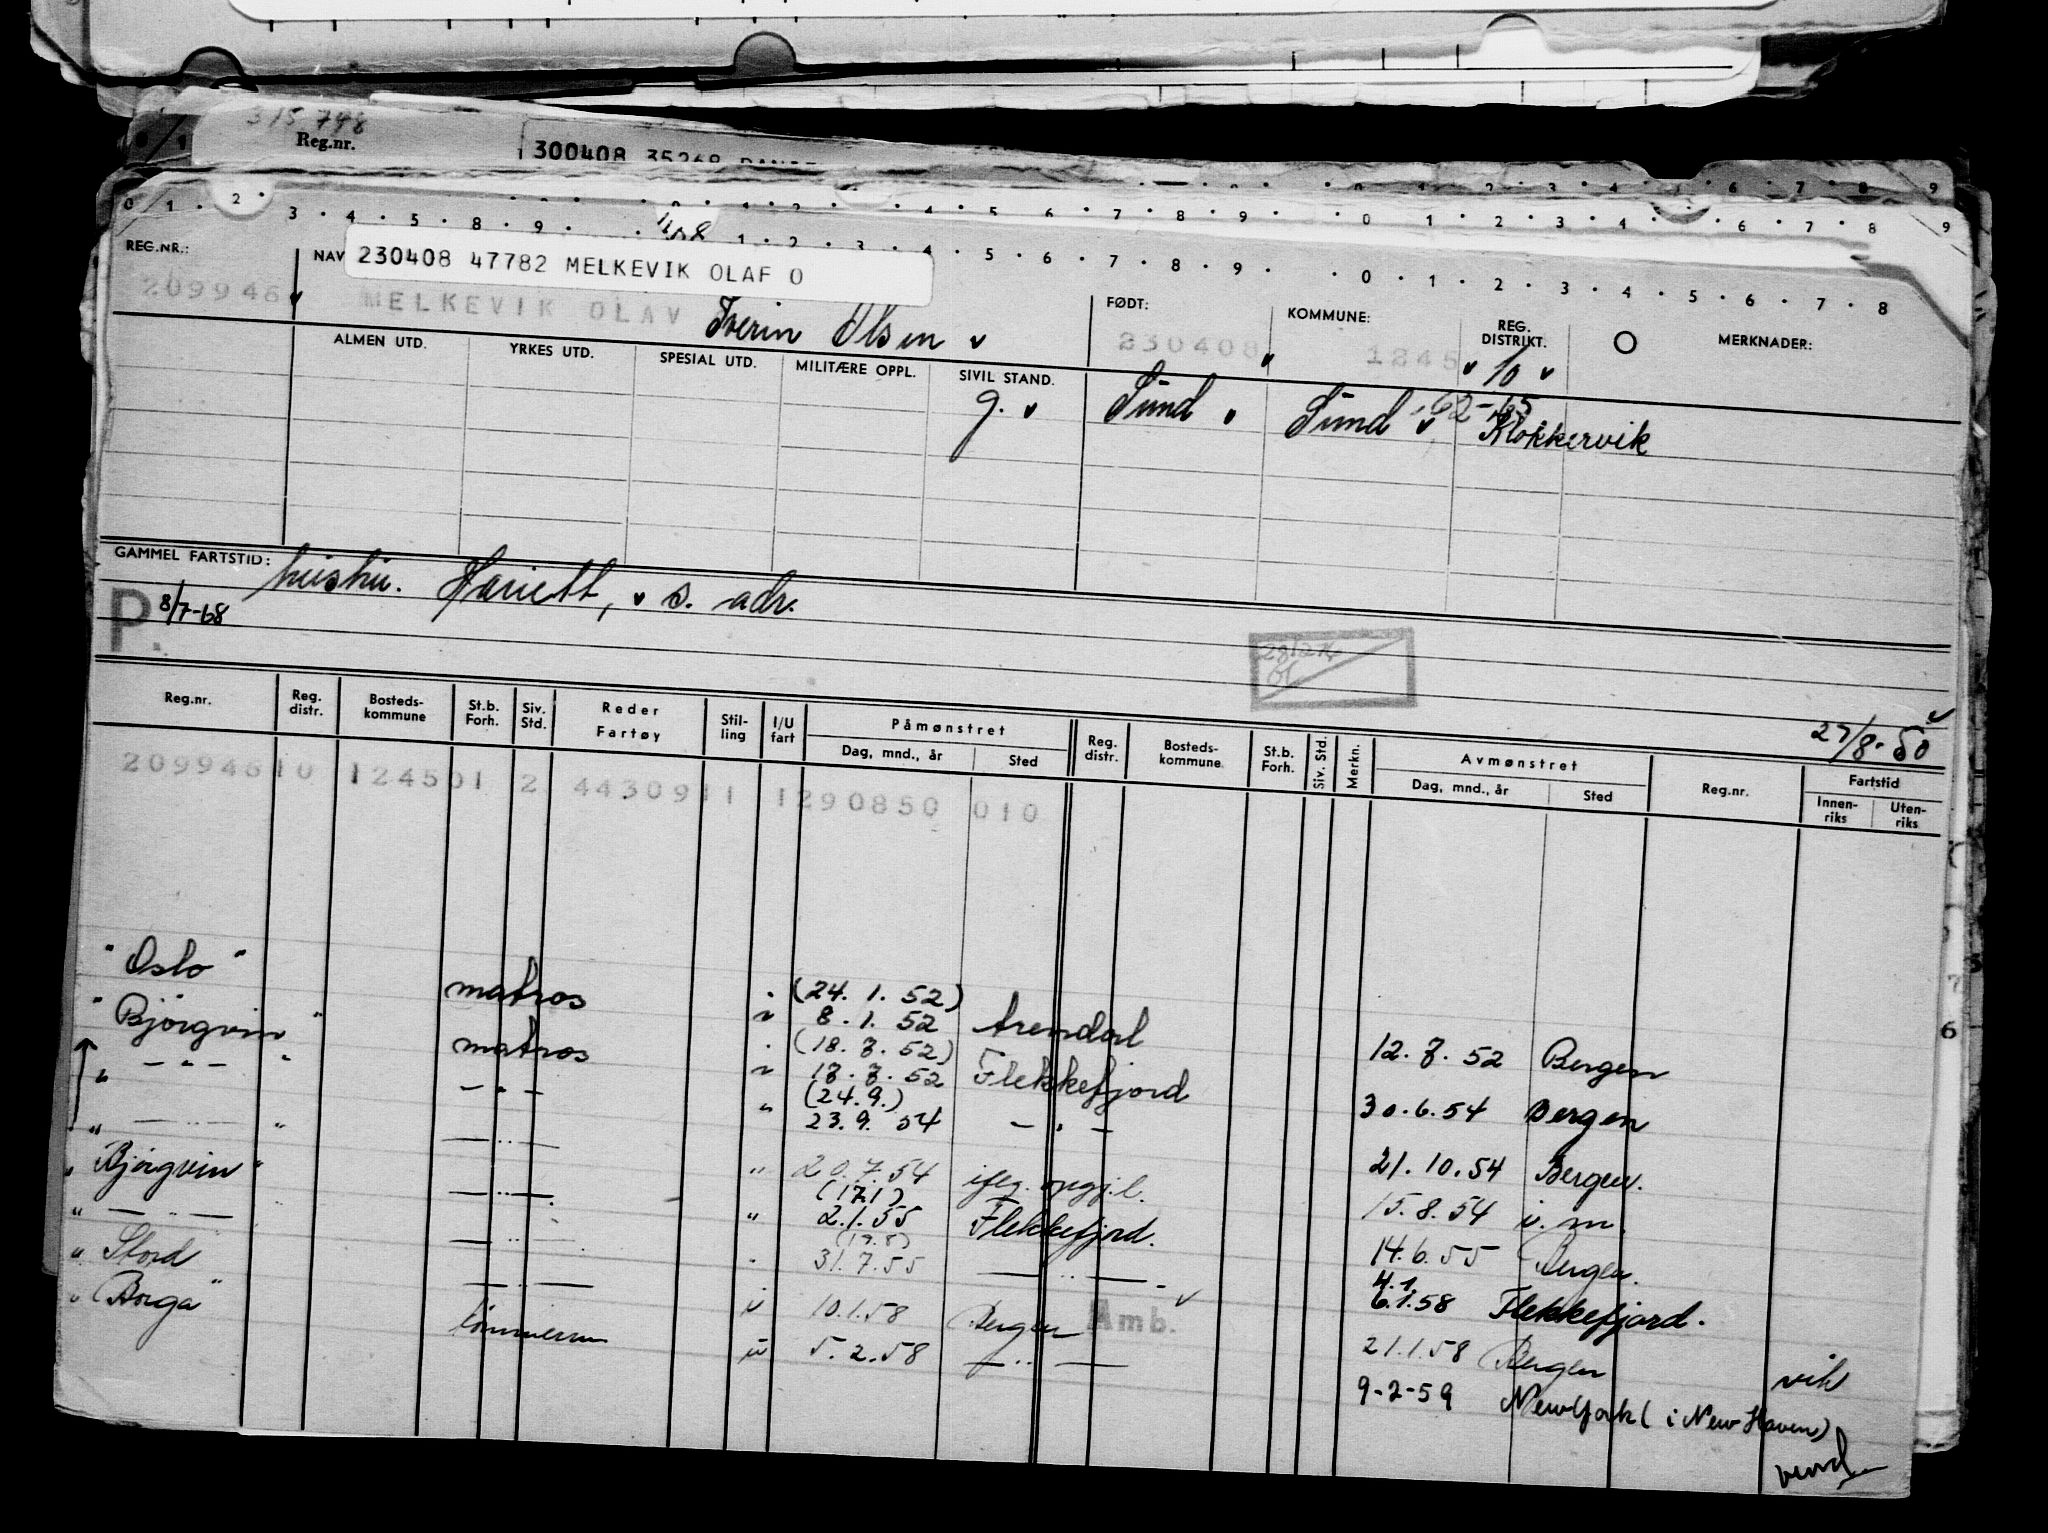 315 798
Reg.nr.
300408 35268
0 1 2 3 4 5 8 9 1 2 3 4 5 6 7 8 9 0 1 2 3 4 5 6 7 8
REG.NR.: NAV 230408 47782 MELKEVIK OLAF O
209946 MELKEVIK OLAV Sverin Olsen FØDT: 230408 KOMMUNE: 1245 REG. DISTRIKT. 10 MERKNADER:
ALMEN UTD. YRKES UTD. SPESIAL UTD. MILITÆRE OPPL. SIVIL STAND.
g. Sund Sund 62-65 Klokkervik
GAMMEL FARTSTID: hushu. Hariett, s. adr.
P. 8/7-68
27/8-50
Reg.nr. Reg. distr. Bosteds-kommune St.b. Forh. Siv. Std. Reder Fartøy Stil-ling I/U fart Påmønstret Dag, mnd., år Sted Reg. distr. Bosteds-kommune St.b. Forh. Siv. Std. Merkn. Avmønstret Dag, mnd., år Sted Reg.nr. Fartstid Innen-riks Uten-riks
209946 10 1245 01 2 443091 1 1 290850 010
"Oslo" matros (24. 1. 52) 8. 1. 52 Arendal 12. 7. 52 Bergen
"Bjørgvin" matros (18. 7. 52) 17. 7. 52 Flekkefjord 30. 6. 54 Bergen
" — " — " — " — (24. 9.) 23. 9. 54 — " — 21. 10. 54 Bergen.
" — " — " — " — " 20. 7. 54 15. 8. 54 i. m.
"Bjørgvin" — " — " (17.1) 2. 1. 55 Flekkefjord. 14. 6. 55 Bergen.
" — " — — " — 31. 7. 55 — " — 4.1. 6.1.58 Flekkefjord.
" Stord — " — 10. 1. 58 Bergen Amb. 21. 1. 58 Bergen vik
" Borga" tømmerm 5. 2. 58 — " — 9-2-59 New York (i New Haven)
vend